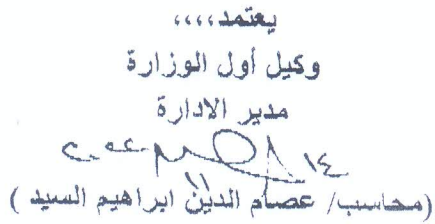 يعتمد،،،،
وكيل أول الوزارة
مدير الادارة
(محاسب/ عصام الدين ابراهيم السيد )